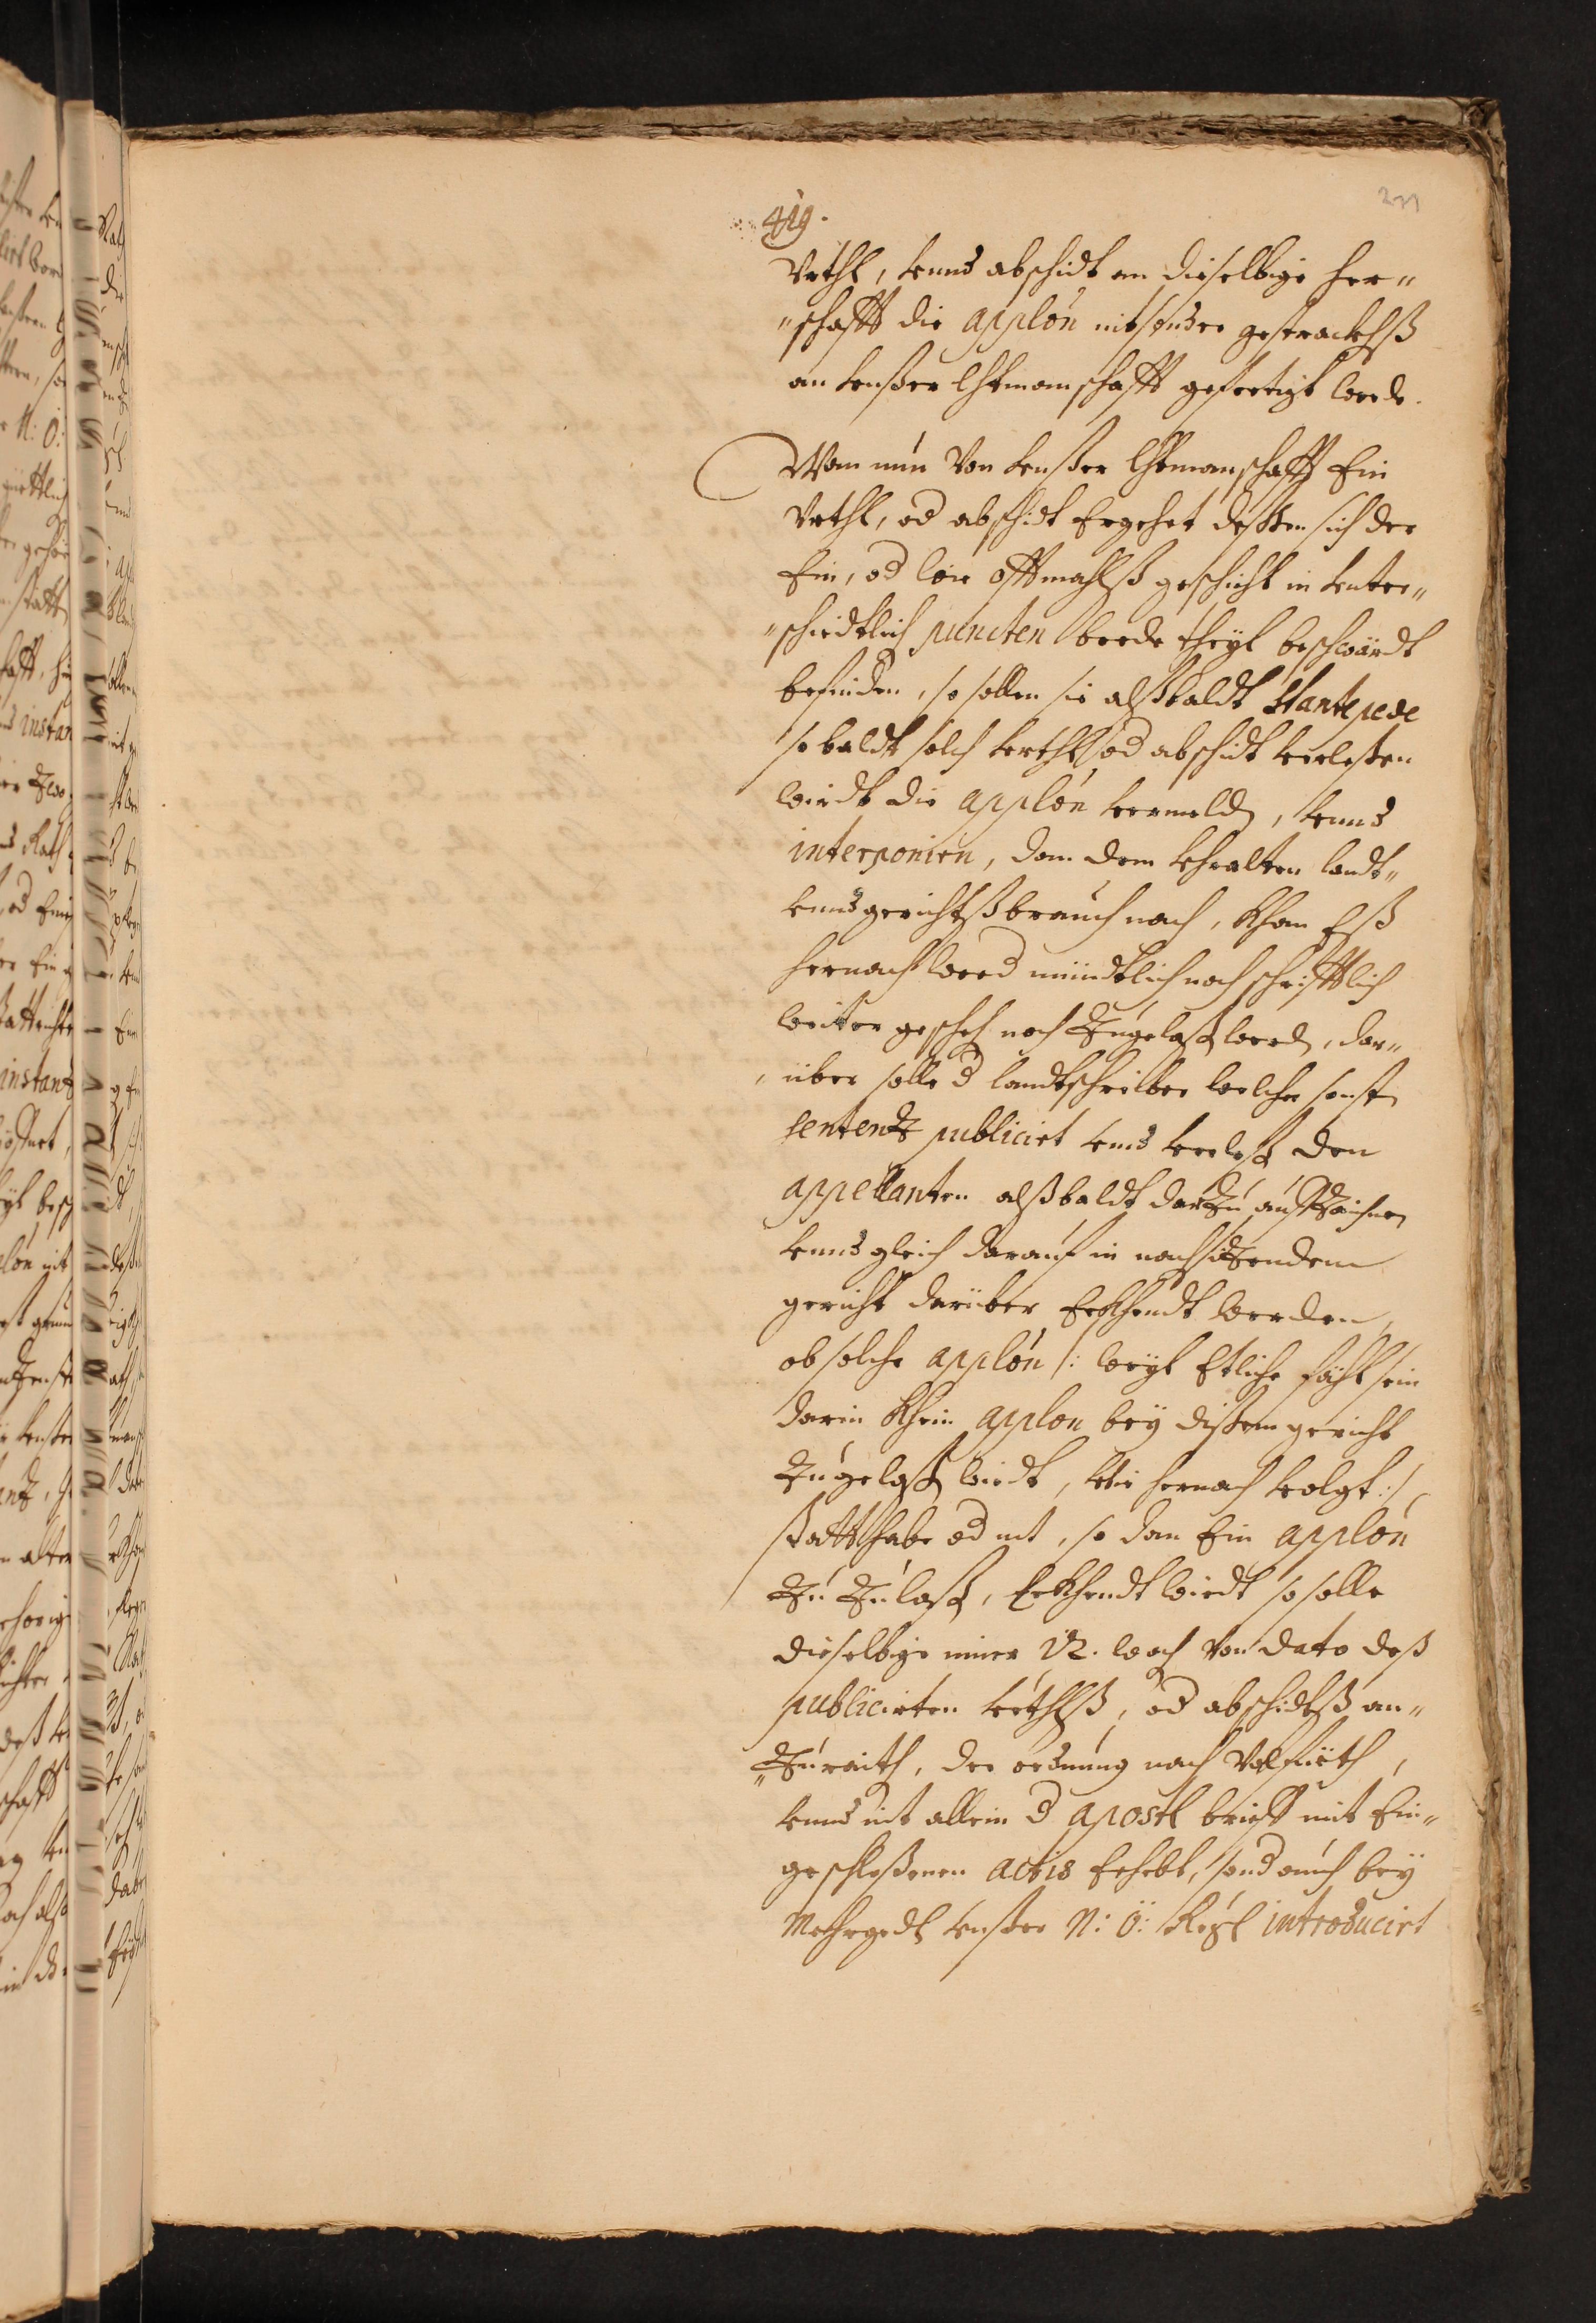 419.
277
Vrthl, vnnd abschidt an dieselbige her„
„schafft die applōn nit sonder gestrackhlß
an vnßer Vhtmanschafft gefertigt werde.
Wan nun von vnßer Vhtmanschafft Ein
Vrthl, od abschidt Ergehet deßen sich der
Ein, od wie offtmahlß geschicht in vnter„
„schiedtlich puncten beede theyl beschwärdt
befinden, so sollen sie alßbaldt stante pede
so baldt solch vrthl od abschidt verleßen
wirdt die applōn vermelden, vnnd
interponirn, dan dem vhralten landt„
vnnd gerichtßbrauch nach, khan Eß
hernach weed mündtlich noch schrifftlich
weiter gescheh noch Zugelaß werd, dar„
„über solle d landtschreiber welcher sonst
sentenz publicirt vnnd verleß den
appellanten alßbaldt darZu auffZaichnen
vnnd gleich darauf in nachsitzendem
gericht darüber Erkhendt werden,
ob solche applōn /: weyl Etliche fähl sein
darin khein applon bey dißem gericht
Zugelaß wirdt, wie hernach volgt :/
statt habe od nit, so dan Ein applōn
Zu Zulaß, Erkhendt wirdt so solle
dieselbige inner 12. woch von dato deß
publicirten vrthlß, od abschidtß an„
„Zuraith, der ordnung nach Volfüeth,
vnnd nit allein d apostl brieff mit Ein„
geschloßenen actis Erhebt, sond auch bey
Mehrgedl vnßer N: Ö: Regl introducirt